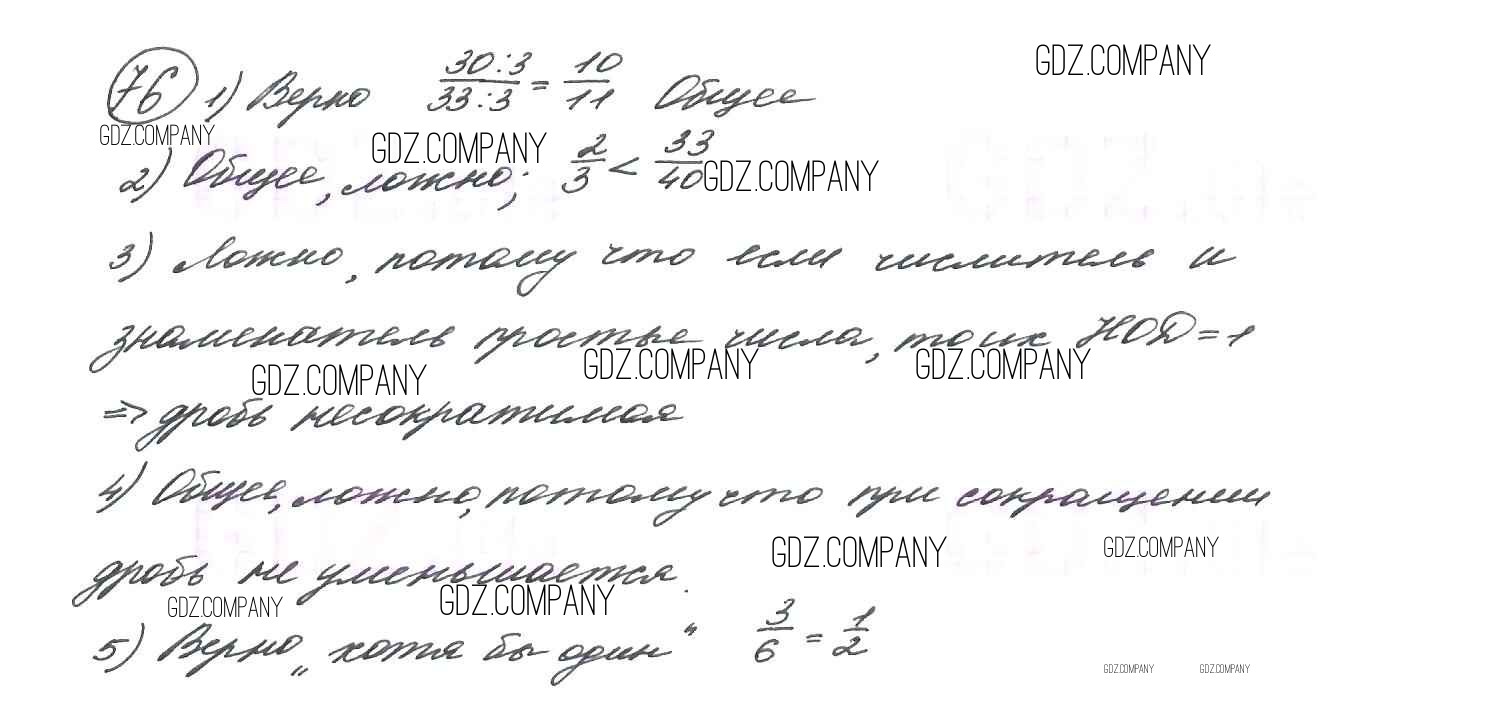 GDZ.COMPANY
76 1) Верно 30:3/33:3 = 10/11 Общее
GDZ.COMPANY GDZ.COMPANY
2) Общее, ложно; 2/3 < 33/40 GDZ.COMPANY
3) Ложно, потому что если числитель и
знаменатель простые числа, то их НОД = 1
GDZ.COMPANY GDZ.COMPANY GDZ.COMPANY
=> дробь несократимая
4) Общее, ложно, потому что при сокращении
GDZ.COMPANY GDZ.COMPANY
дробь не уменьшается.
GDZ.COMPANY GDZ.COMPANY
5) Верно „хотя бы один“ 3/6 = 1/2
GDZ.COMPANY GDZ.COMPANY